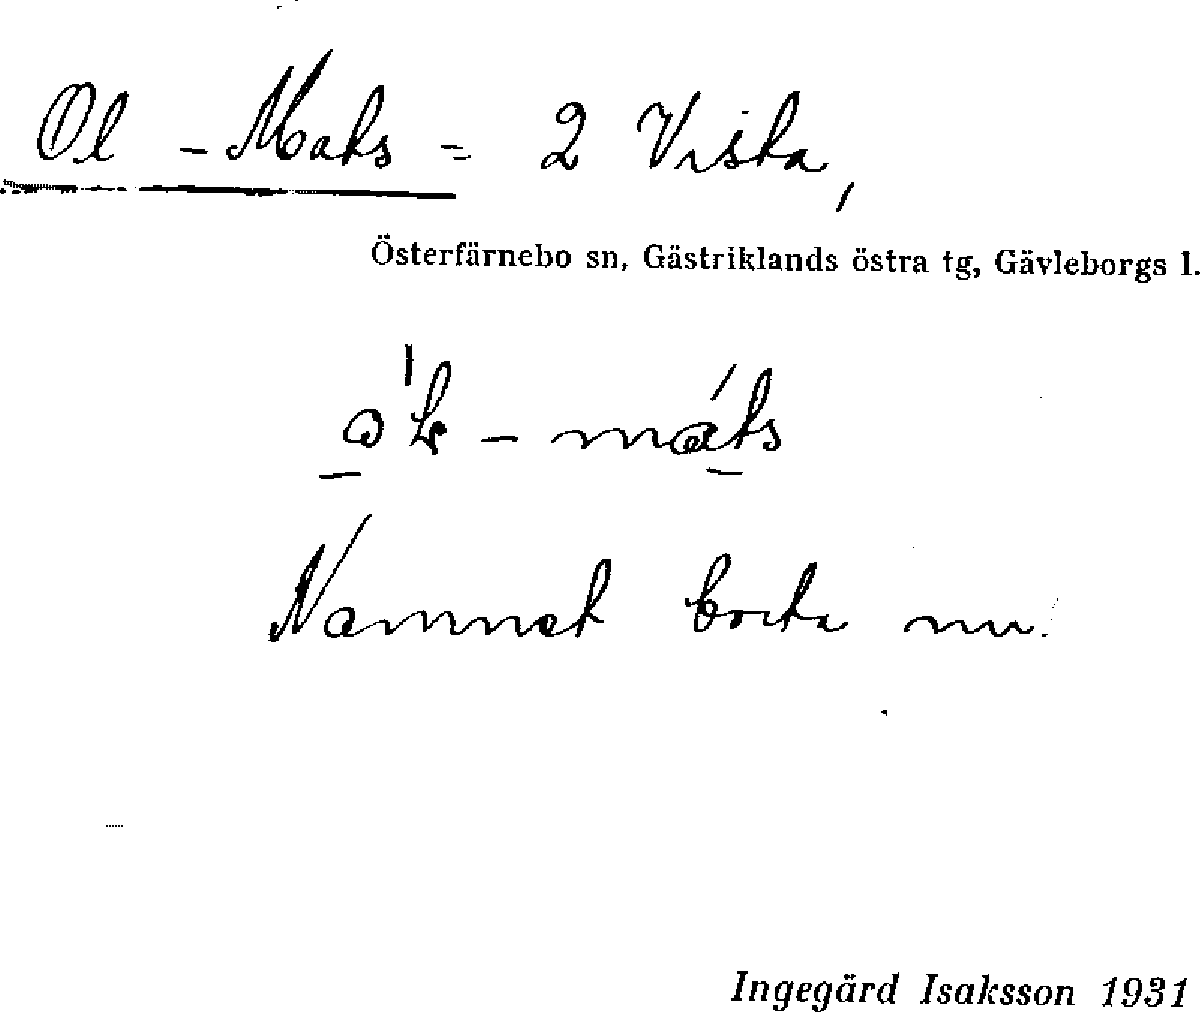 Ol - Mats = 2 Vista,
Österfärnebo sn, Gästriklands östra tg, Gävleborgs l.
Namnet borta nu.
Ingegärd Isaksson 1931